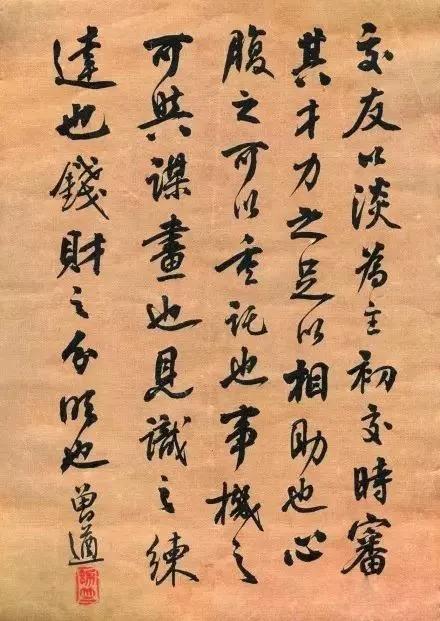 交友以淡為主初交時審
其才力之足以相助也心
腹之可以重託也事機之
可與謀畫也見識之練
達也錢財之分明也
曾遒